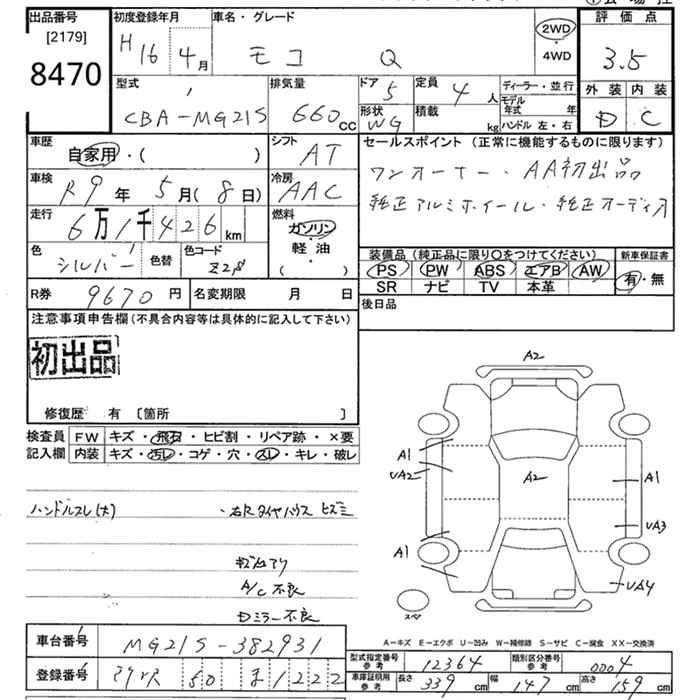 出品番号
[2179]
8470
初度登録年月
H16 4月
車名・グレード
モコ Q
2WD
4WD
評価点
3.5
外装 内装
D C
型式
CBA-MG21S
排気量
660cc
ドア
5
形状
WG
定員
4人
積載
kg
ディーラー・並行
モデル年式 年
ハンドル 左・右
車歴
自家用・( )
シフト
AT
車検
R9年 5月(8日)
冷房
AAC
走行
6万1千426km
燃料
ガソリン
軽・油
( )
色
シルバー
色替
色コード
Z2S
R券 9670円
名変期限 月 日
セールスポイント (正常に機能するものに限ります)
ワンオーナー・AA初出品
純正アルミホイール・純正オーディオ
装備品 (純正品に限り〇をつけてください)
PS PW ABS エアB AW
SR ナビ TV 本革
新車保証書
有・無
後日品
注意事項申告欄(不具合内容等は具体的に記入して下さい)
初出品
修復歴 有 〔箇所 〕
検査員記入欄
FW キズ・飛石・ヒビ割・リペア跡・×要
内装 キズ・汚レ・コゲ・穴・スレ・キレ・破レ
ハンドルスレ(大)
・右Rタイヤハウス ヒズミ
キズ凹アリ
A/C 不良
Dミラー不良
A2
A1
UA2
A2
A1
UA3
A1
UA4
スペア
A-キズ E-エクボ U-凹み W-補修跡 S-サビ C-腐食 XX-交換済
車台番号 MG21S-382931
登録番号 50 ま 1222
型式指定番号 参考 12364
類別区分番号 参考 0004
車庫証明用 参考 長さ 339cm 幅 147cm 高さ 159cm